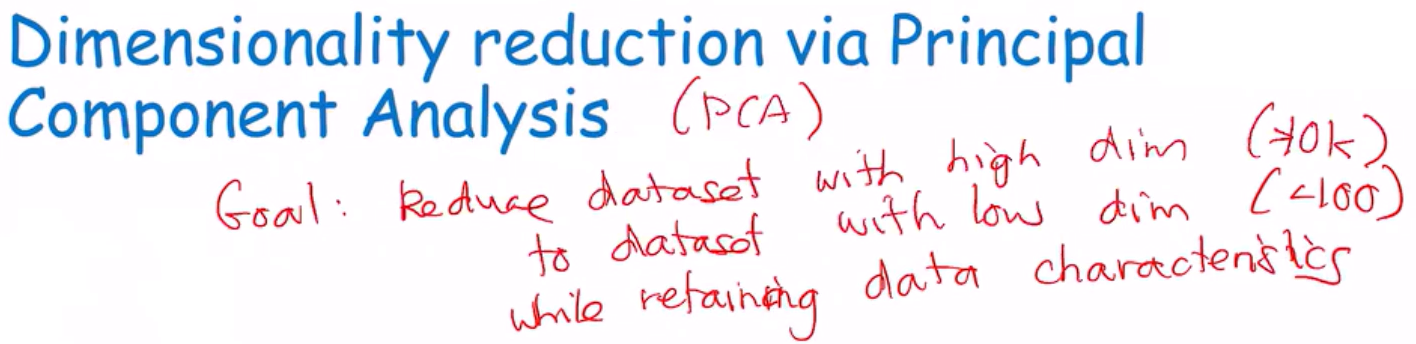 Dimensionality reduction via Principal
Component Analysis (PCA)
Goal: Reduce dataset with high dim (>10k)
to dataset with low dim (<100)
while retaining data characteristics